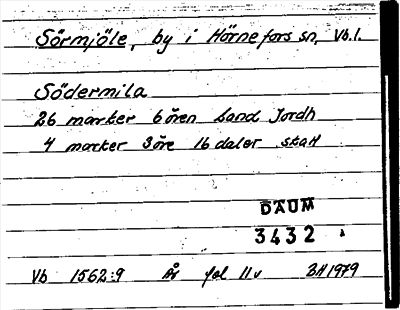 Sörmjöle, by i Hörnefors sn, Vb.l.
Södermila
26 marker 6 ören Land Jordh
4 marker 3 öre 16 daler skatt
DAUM
3432
Vb 1562:9 År fol 11v BH 1979